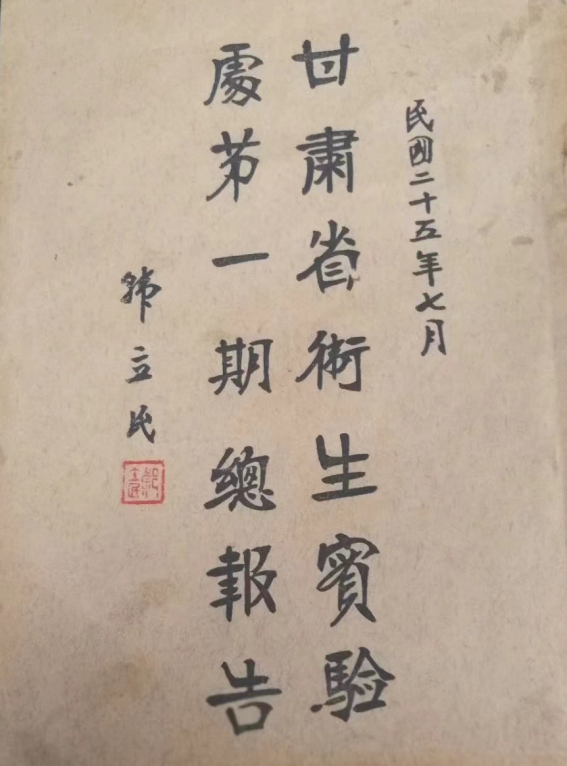 民國二十五年七月
甘肅省衛生實驗
處第一期總報告
韓立民